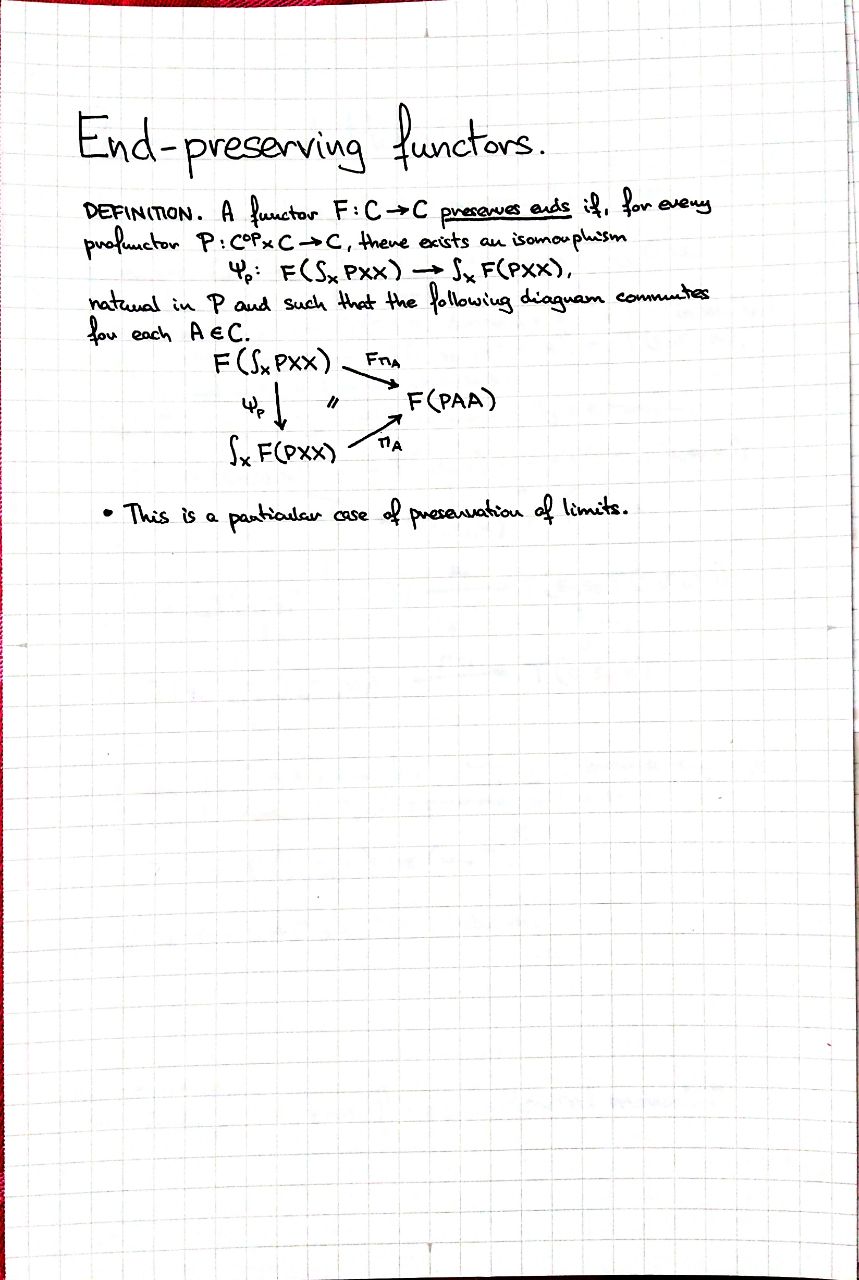 End-preserving functors.
DEFINITION. A functor F : C → C preserves ends if, for every
profunctor P : C^OP × C → C, there exists an isomorphism
Ψ_P : F(∫_X PXX) → ∫_X F(PXX),
natural in P and such that the following diagram commutes
for each A ∈ C.
F(∫_X PXX) Fπ_A
Ψ_P ↓ // F(PAA)
∫_X F(PXX) π_A
• This is a particular case of preservation of limits.